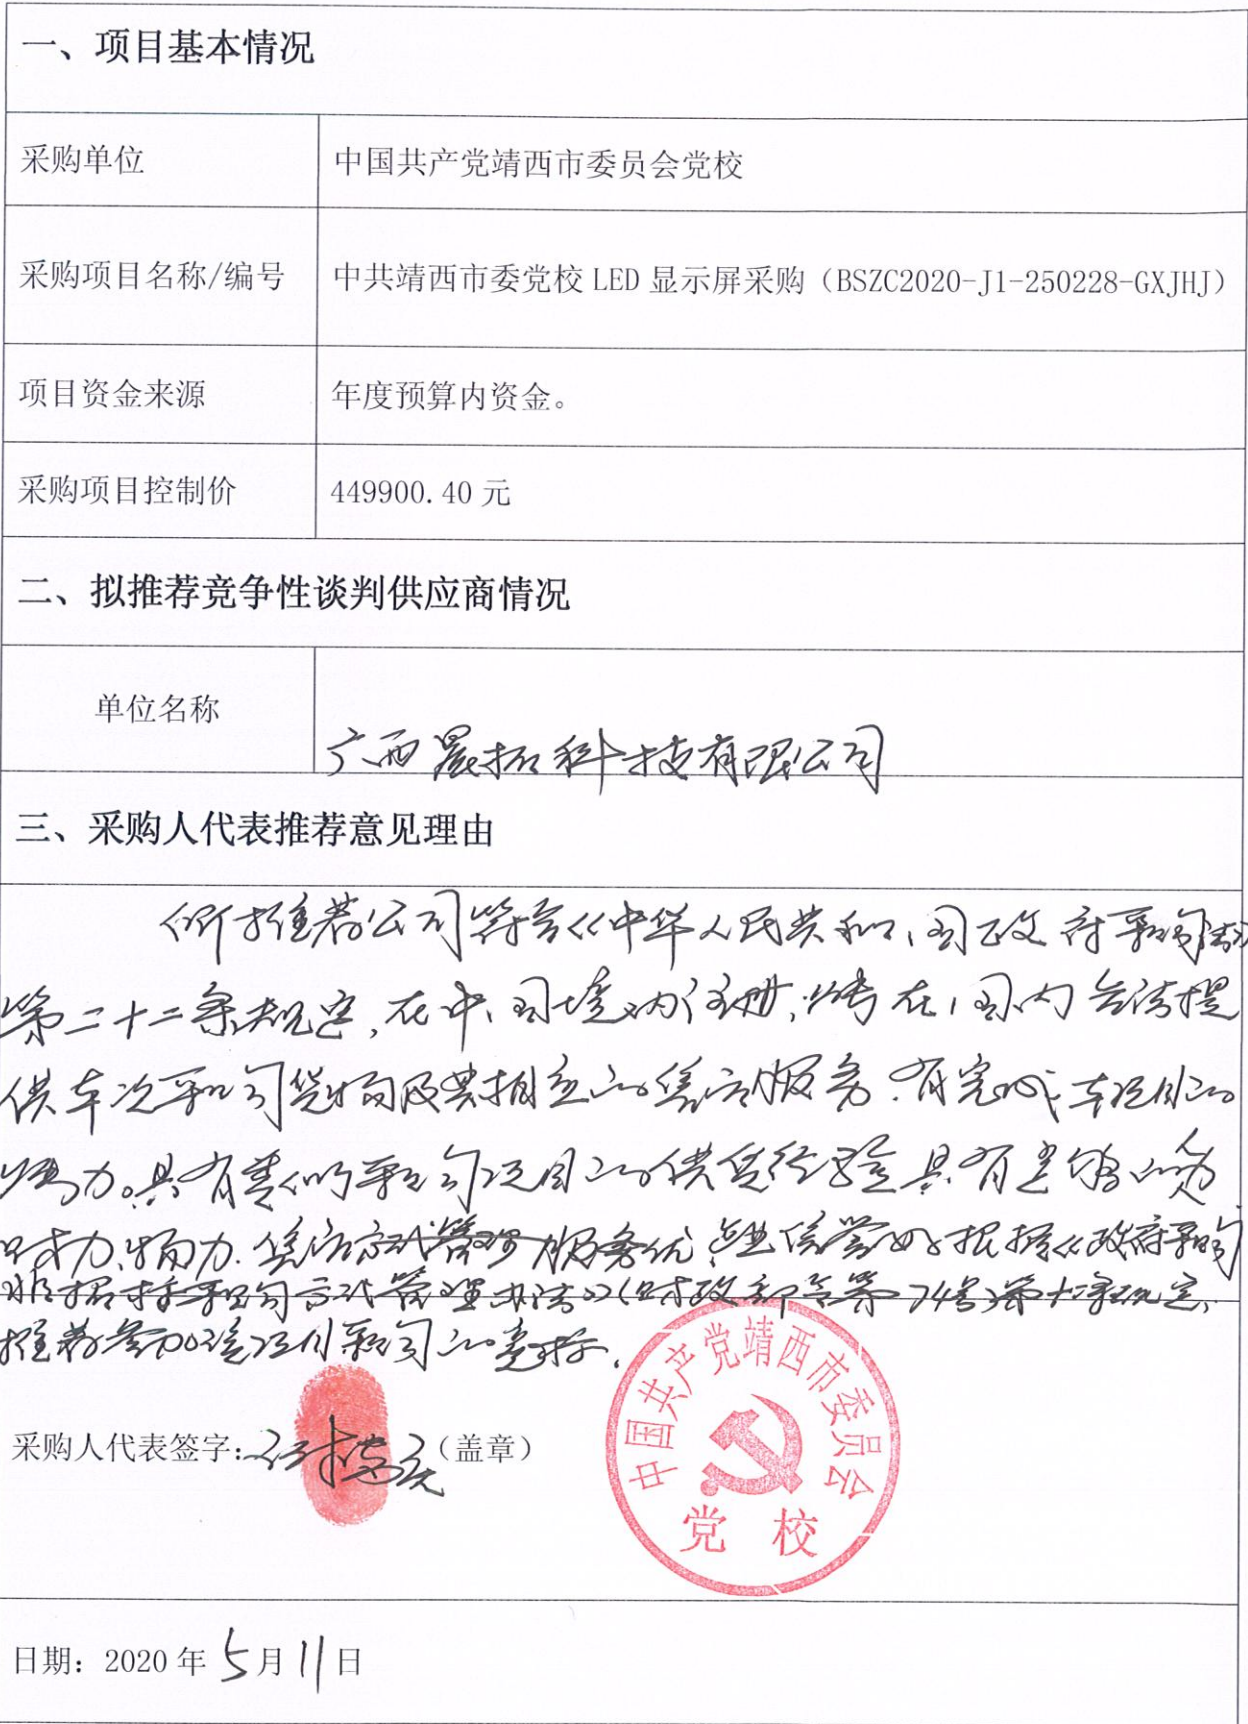 一、项目基本情况
采购单位
中国共产党靖西市委员会党校
采购项目名称/编号
中共靖西市委党校 LED 显示屏采购（BSZC2020-J1-250228-GXJHJ）
项目资金来源
年度预算内资金。
采购项目控制价
449900.40 元
二、拟推荐竞争性谈判供应商情况
单位名称
广西晟拓科技有限公司
三、采购人代表推荐意见理由
所推荐公司符合《中华人民共和国政府采购法》
第二十二条规定,在中国境内注册,能在国内合法提
供本次采购货物及其相应的售后服务.有完成本项目的
能力。具有类似采购项目的供货经验具有足够的人力
财力、物力.售后服务优,企业信誉好根据《政府采购
非招标采购方式管理办法》(财政部令第74号)第十二条规定,
推荐参加该项目采购的竞标.
采购人代表签字:
（盖章）
中国共产党靖西市委员会
党校
日期: 2020 年 5 月 11 日